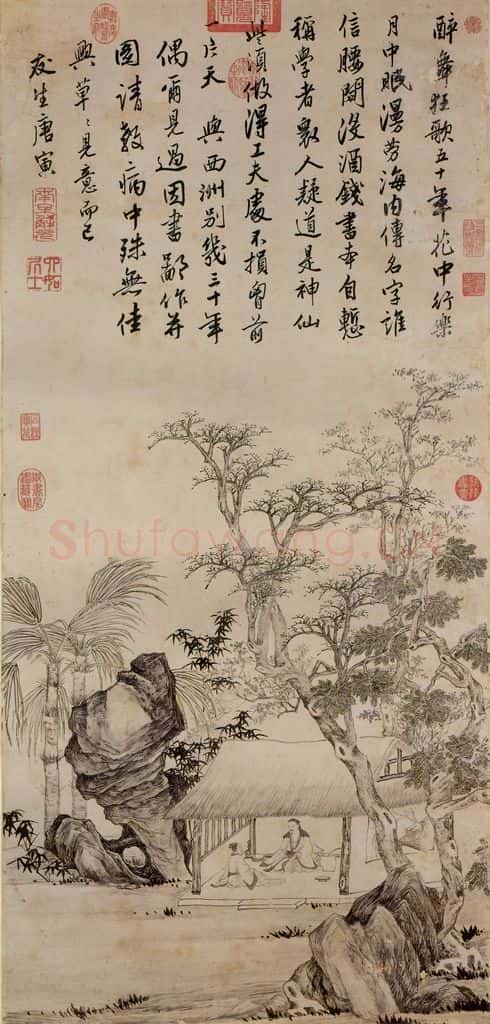 醉舞狂歌五十年花中行樂
月中眠漫勞海內傳名字誰
信腰間沒酒錢書本自慙
稱學者衆人疑道是神仙
些須做得工夫處不損胷前
一片天 與西洲別幾三十年
偶爾見過因書鄙作并
圖請教病中殊無佳
興草〻見意而已
友生唐寅
南京解元
六如居士
Shufawang.CN